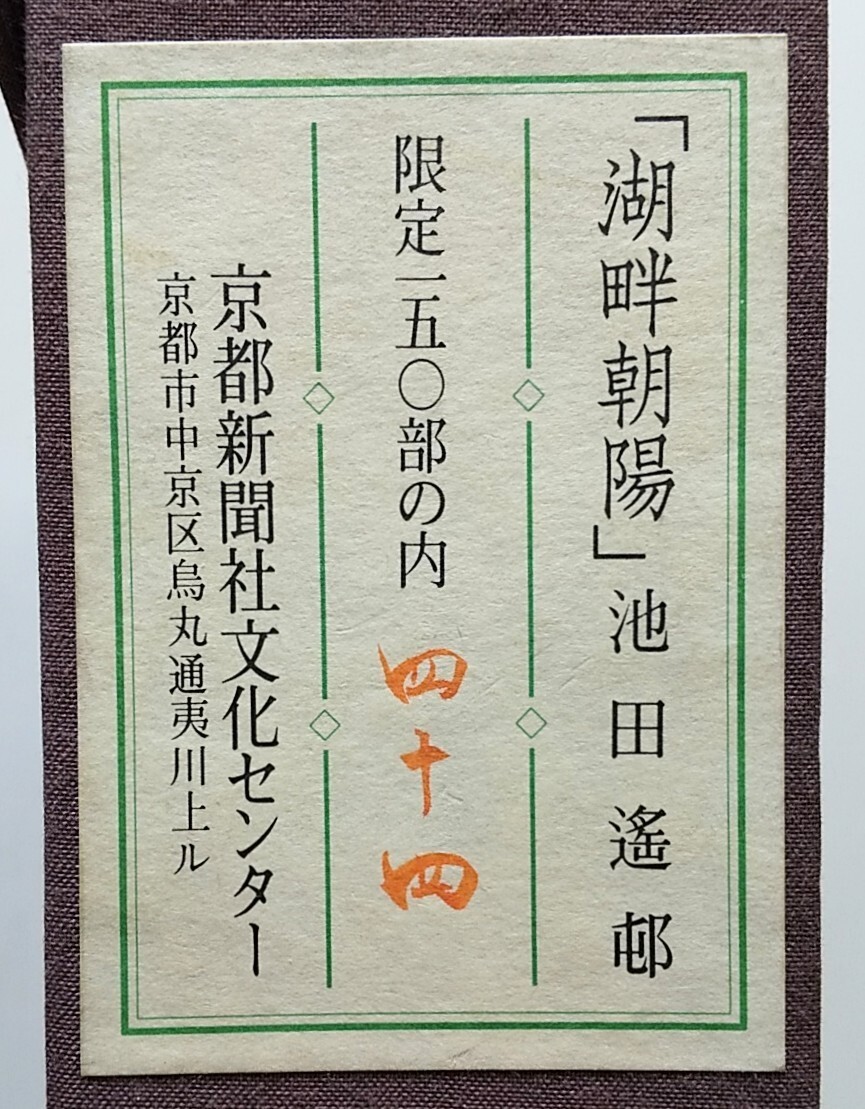 「湖畔朝陽」池田遙邨
限定一五〇部の内 四十四
京都新聞社文化センター
京都市中京区烏丸通夷川上ル